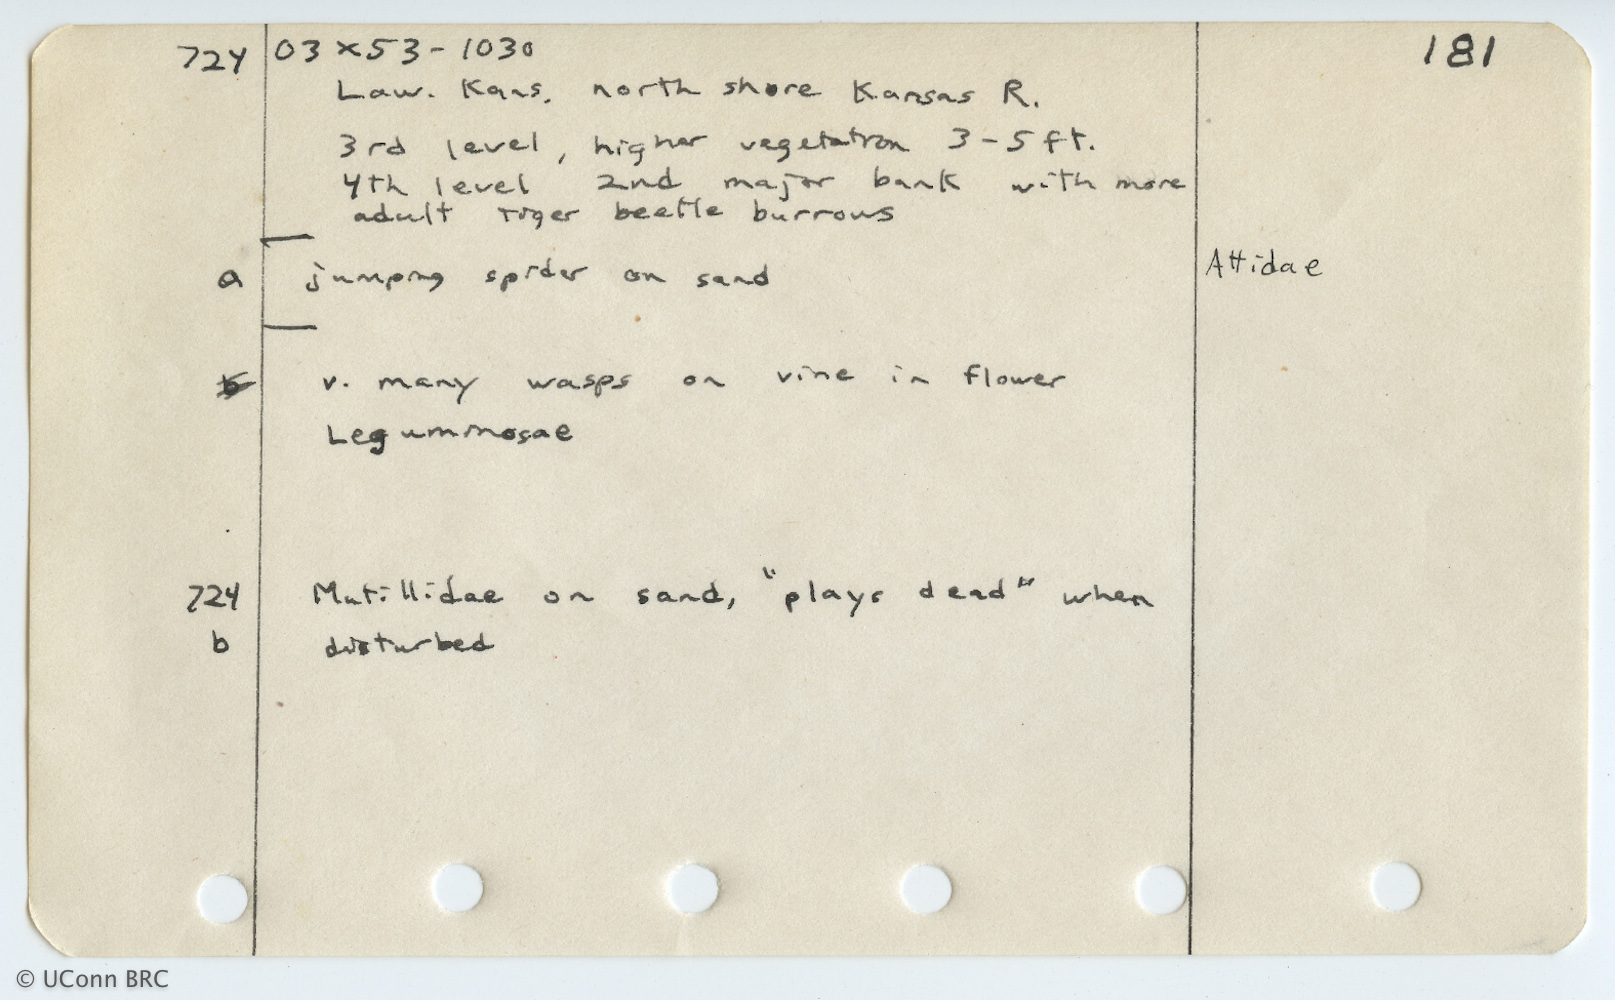 181
724 03 x 53 - 1030
Law. Kans. north shore Kansas R.
3rd level, higher vegetation 3-5 ft.
4th level 2nd major bank with more
adult tiger beetle burrows
a jumping spider on sand Attidae
b v. many wasps on vine in flower
Leguminosae
724 Mutillidae on sand, "plays dead" when
b disturbed
© UConn BRC